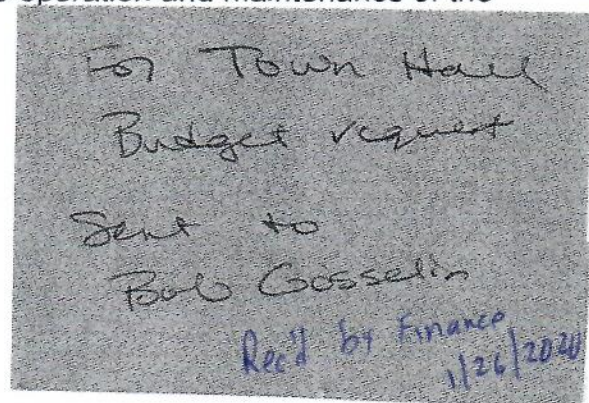 operation and maintenance of the
For Town Hall
Budget request
Sent to
Bob Gosselin
Rec'd by Finance
1/26/2020